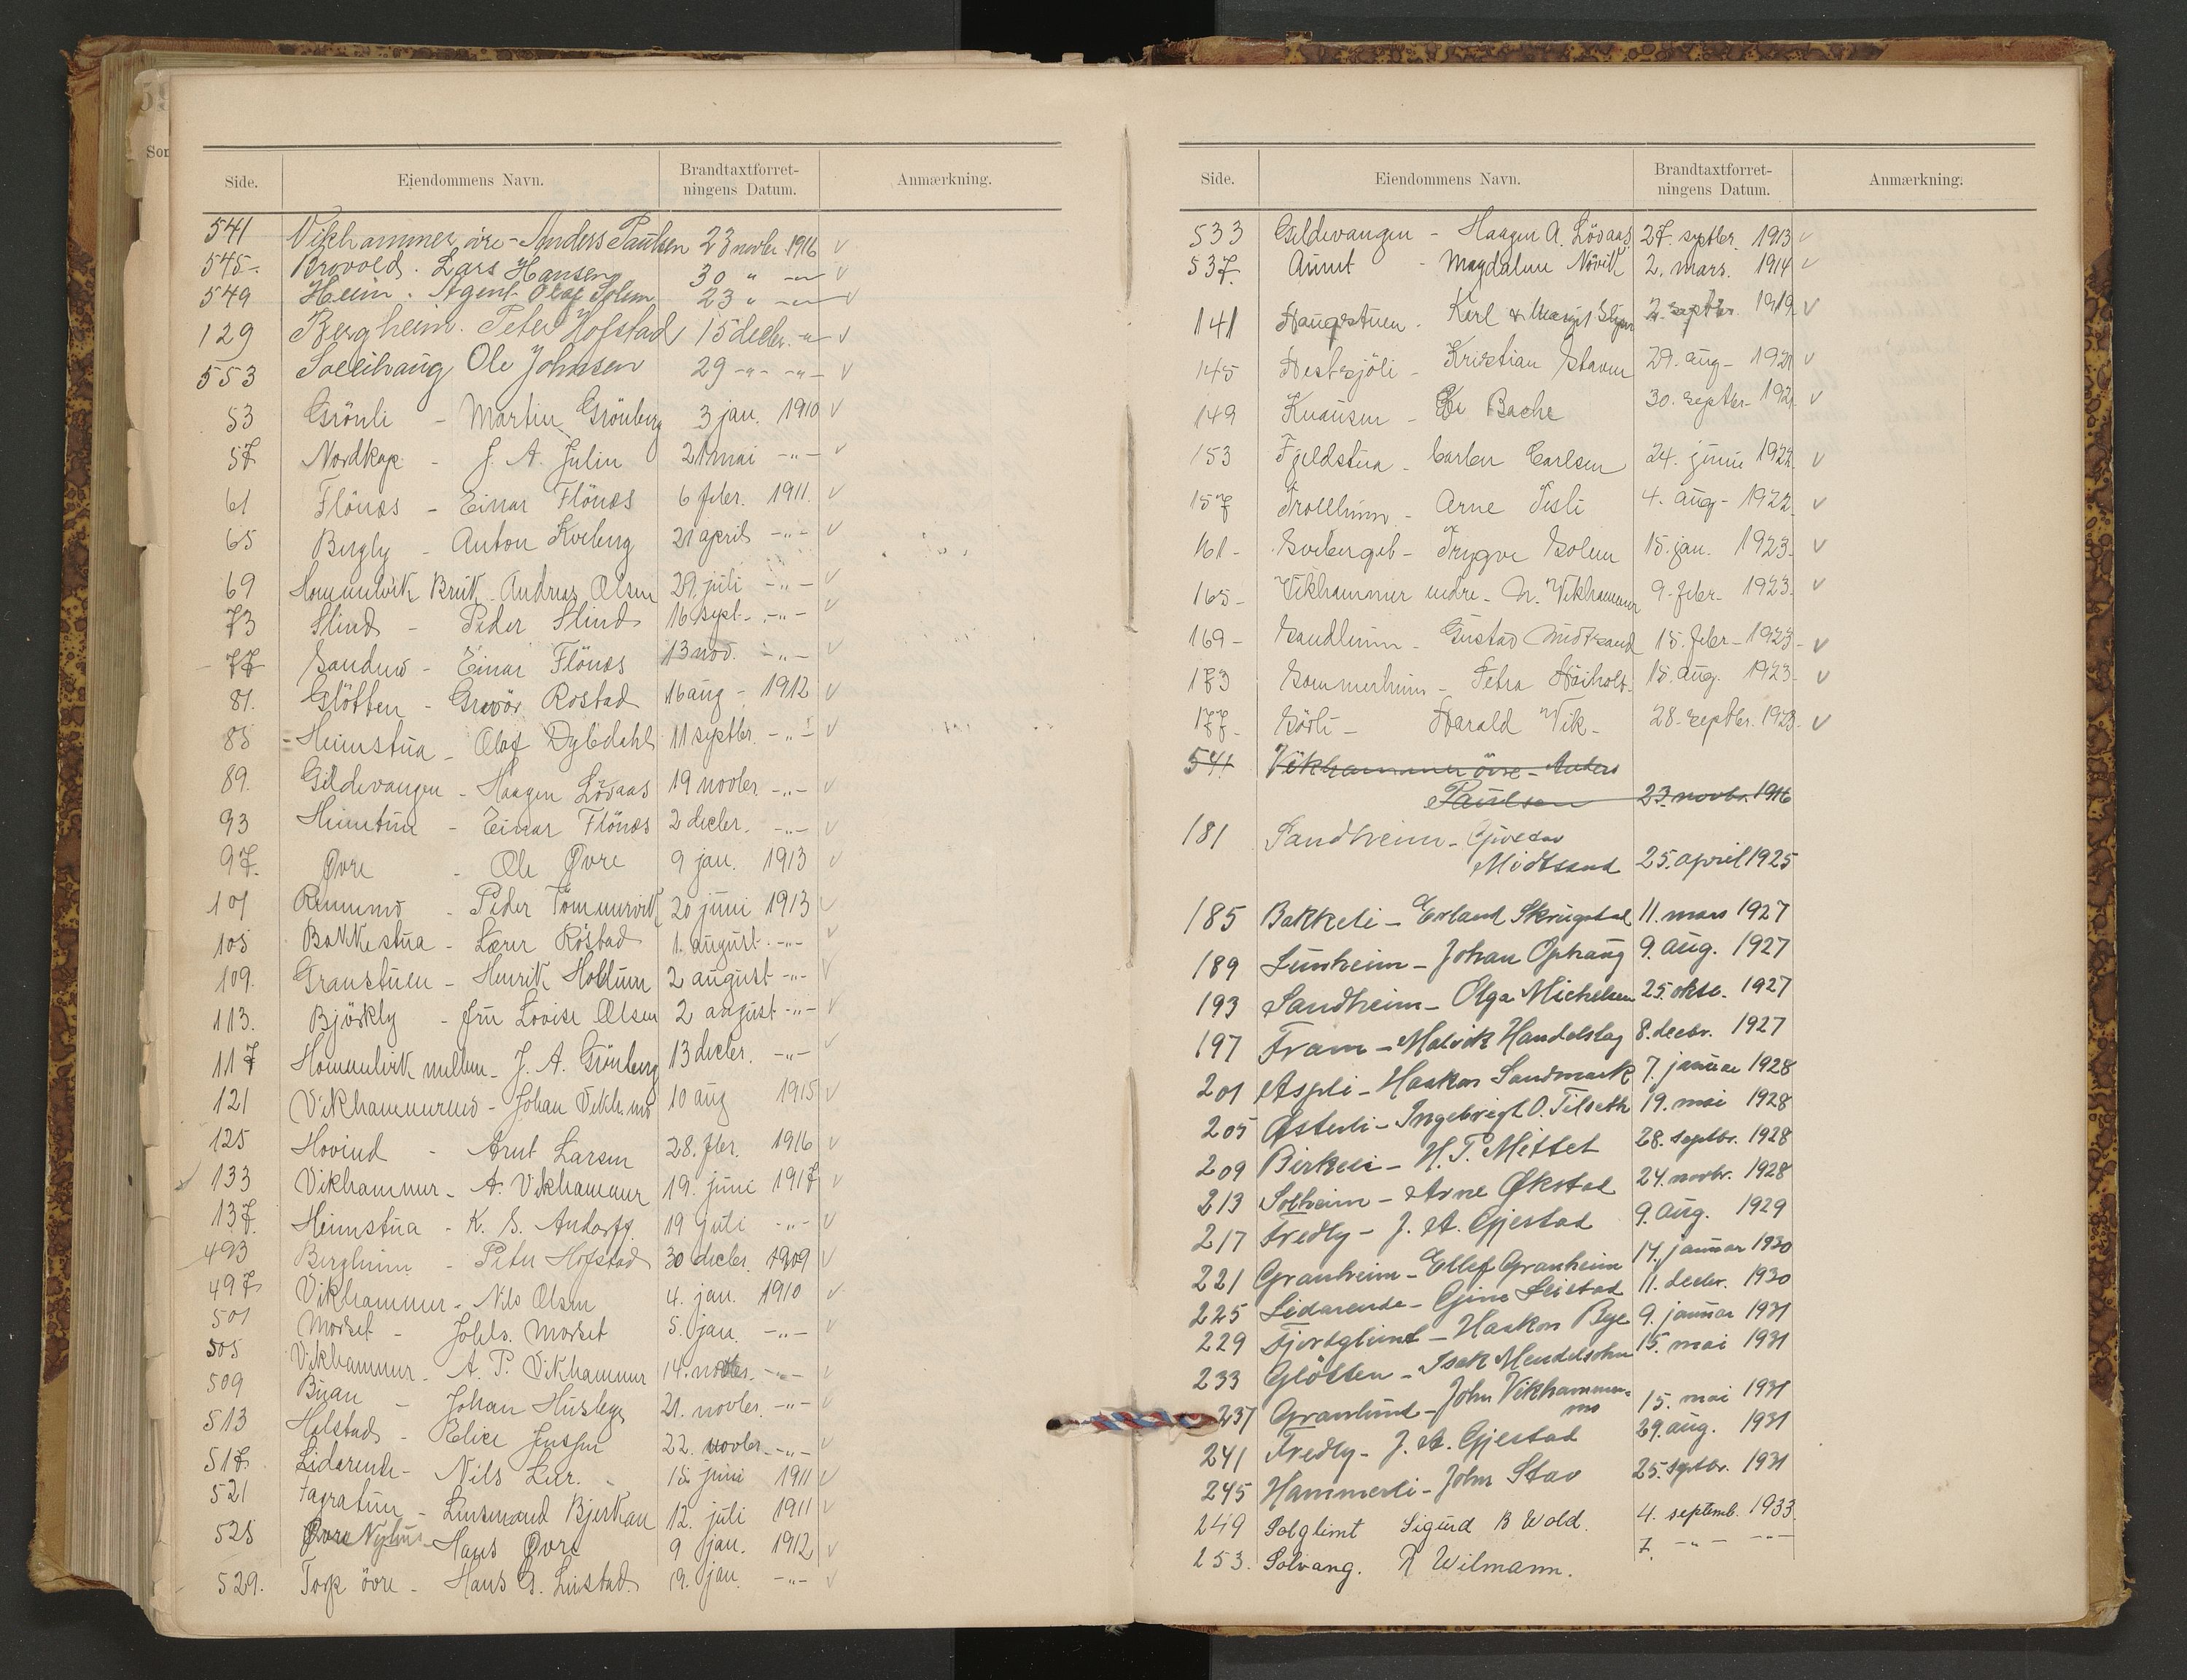 Side. Eiendommens Navn. Brandtaxtforret-ningens Datum. Anmærkning.
541 Vikhammer øvre - Anders Paulsen 23 novbr 1916 v
545 - Brovold. Lars Hansen 30 " -"- v
549 Heim. Agent Olaf Solem 23 " -"- v
129 Bergheim. Peter Hofstad 15 decbr. -"- v
553 Solihaug Ole Johnsen 29 -"- -"- v
53 Grönli - Martin Grönberg 3 jan. 1910 v
57 Nordkap - J. A. Julin 21 mai -"- v
61 Flönes - Einar Flönes 6 febr. 1911. v
65 Bergly - Anton Kveberg 21 april -"- v
69 Hommelvik Bruk - Andreas Olsen 29. juli -"- v
73 Slind - Peder Slind 16 sept. -"- v
77 Sandmo - Einar Flönes 13 nov. -"- v
81. Glötten - Rostad 16 aug - 1912 v
85 Heimstua - Olof Dybdahl 11 septbr. -"- v
89. Gildevangen - Haagen Lövaas 19 novbr -"- v
93 Heimtun - Einar Flönes 2 decbr. -"- v
97. Øvre - Ole Øvre 9 jan. 1913 v
101 - Peder Tömmervik 20 juni 1913 v
105 Bakkestua - Lærer Röstad 1. august. -"- v
109. Granstuen - Henrik Holdum 2 august -"- v
113. Björkly - Fru Lovise Olsen 2 august -"- v
117 Hommelvik mellem - J. A. Grönberg 13 decbr. -"- v
121 Vikhammermo - Johan Vikh.mo 10 aug 1915 v
125 Hovind - Arnt Larsen 28. febr. 1916 v
133 Vikhammer - A. Vikhammer 19. juni 1917 v
137. Heimstua - K. S. Andorff. 19 juli -"- v
493 Bergheim - Peter Hofstad 30 decbr. 1909 v
497 Vikhammer - Nils Olsen 4. jan. 1910 v
501 Morset - Johs. Morset 5. jan. -"- v
505 Vikhammer - A. P. Vikhammer 14. novbr. -"- v
509 Buan - Johan Husby 21. novbr. -"- v
513 Halstad - Jensen 22. novbr. -"- v
517. Liderende - Nils Lur. 15 juni 1911 v
521 Fagratun - Lensmand Bjerkan 12. juli 1911 v
525 Øvre - Hans Øvre 9 jan. 1912 v
529. Torp övre - Hans G. Leistad 19. jan. -"- v
Side. Eiendommens Navn. Brandtaxtforret-ningens Datum. Anmærkning.
533 Gildevangen - Haagen A. Lövaas 27. septbr. 1913 v
537. Aunet - Magdalene Növik 2. mars. 1914 v
141 Haugstuen. Karl & 2. septbr. 1919 v
145 Hestsjöli - Kristian Staven 29. aug - 1921 v
149 Knausen - Bache 30. septbr - 1921 v
153 Fjeldstua - Carlsen 24. juni 1922. v
157 Trollheim - Arne Tesli 4. aug - 1922. v
161 - Trygve Solem 15. jan. 1923. v
165 - Vikhammer nedre - N. Vikhammer 9. febr - 1923. v
169 - Sandheim - Gustav Midtsand 15. febr - 1923 - v
173 Sommerheim - Petra 15. aug. 1923 - v
177 - Sörli - Harald Vik - 28 - septbr. 1923. v
541 Vikhammer övre - Anders
Paulsen 23. novbr. 1916
181 Sandheim - Gustav
Midtsand 25. april 1925
185 Bakkeli - Erland Skrugstad 11. mars 1927
189 Lunheim - Johan Ophaug 9. aug. 1927
193 Sandheim - Olga Michelsen 25. oktb. 1927
197 Fram - Malvik Handelslag 8. decbr. 1927
201 Aspli - Haakon Sandmark 7. januar 1928
205 Østerli - Ingebrigt O. Tilseth 19. mai 1928
209 Birkeli - H. P. Mittet 28. septbr. 1928
213 Solheim - Arne Økstad 24. novbr. 1928
217 Fredly - J. A. Gjestad 9. aug. 1929
221 Granheim - Ellef Granheim 14. januar 1930
225 Liderende - Gine Leistad 11. decbr. 1930
229 Fjordglimt - Haakon Bye 9. januar 1931
233 Glötten - Isak Mendelsohn 15. mai 1931
237 Granlund - John Vikhammer-
mo 15. mai 1931
241 Fredly - J. A. Gjestad 29. aug. 1931
245 Hammerli - John Stav 25. septbr. 1931
249 Solglimt Sigurd B Wold. 4. septemb. 1933.
253. Solvang. R Wilmann. 7. -"- -"-